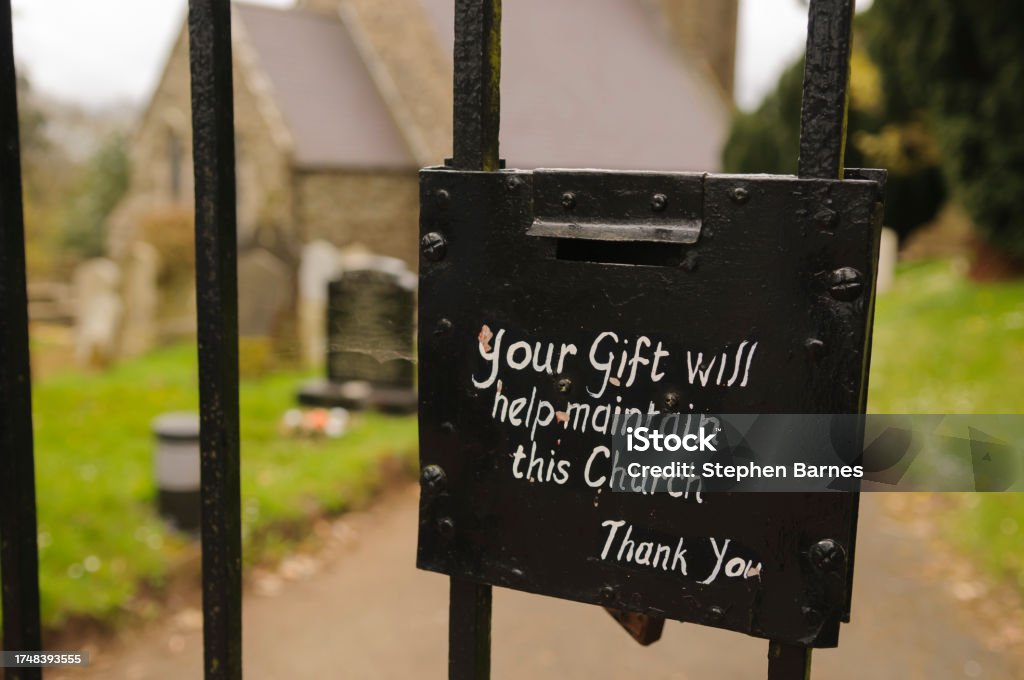 Your Gift will
help maintain
this Church
Thank You
iStock™
Credit: Stephen Barnes
1748393555